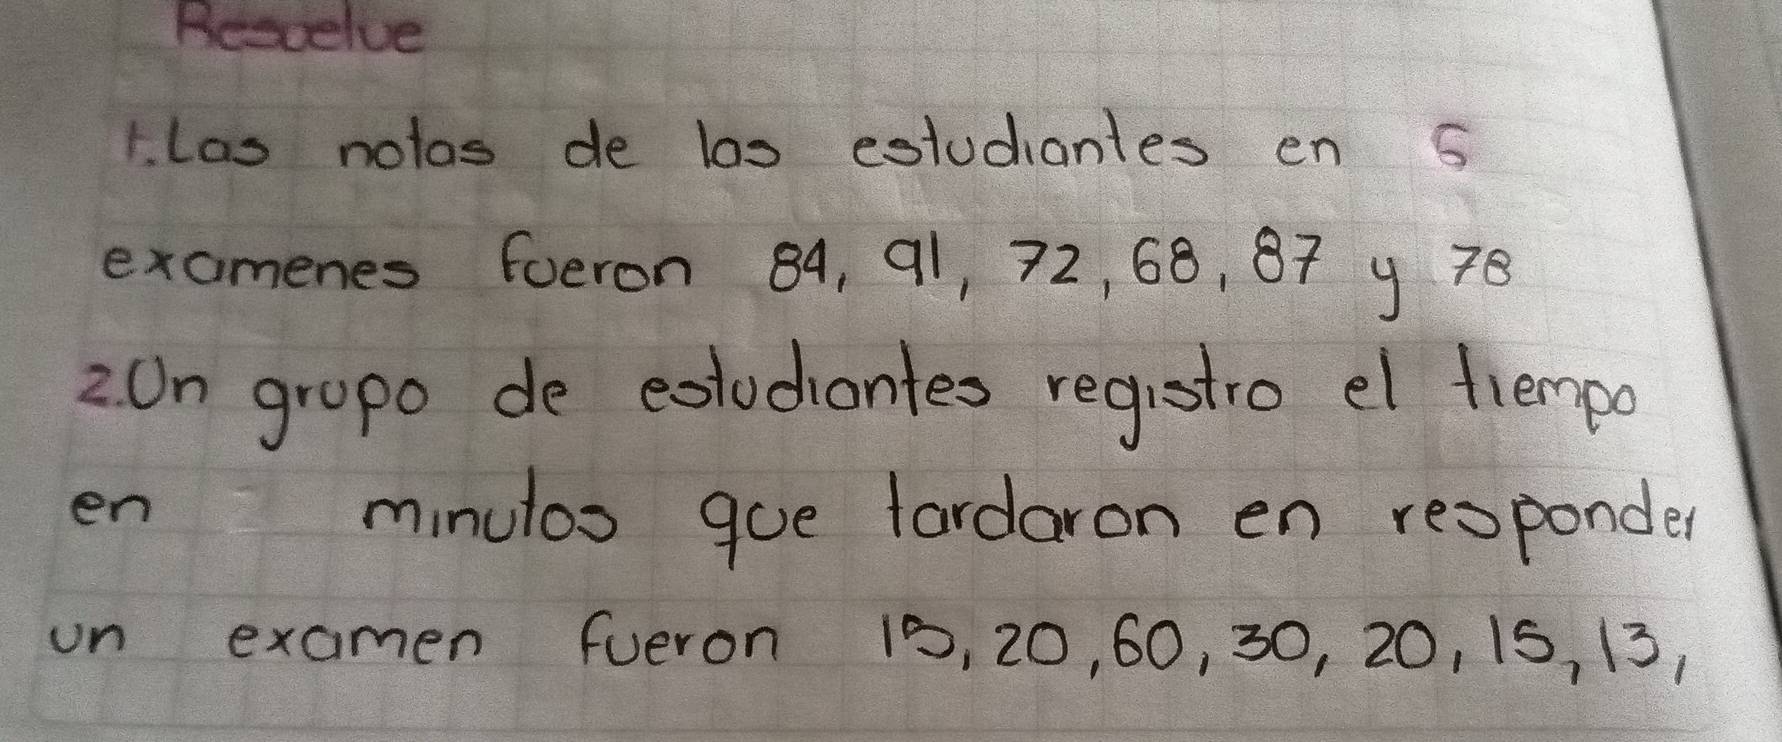 Resuelve
1. Las notas de las estudiantes en 6
examenes fueron 84, 91, 72, 68, 87 y 78
2. Un grupo de estudiantes registro el tiempo
en minutos que tardaron en responder
un examen fueron 15, 20, 60, 30, 20, 15, 13,